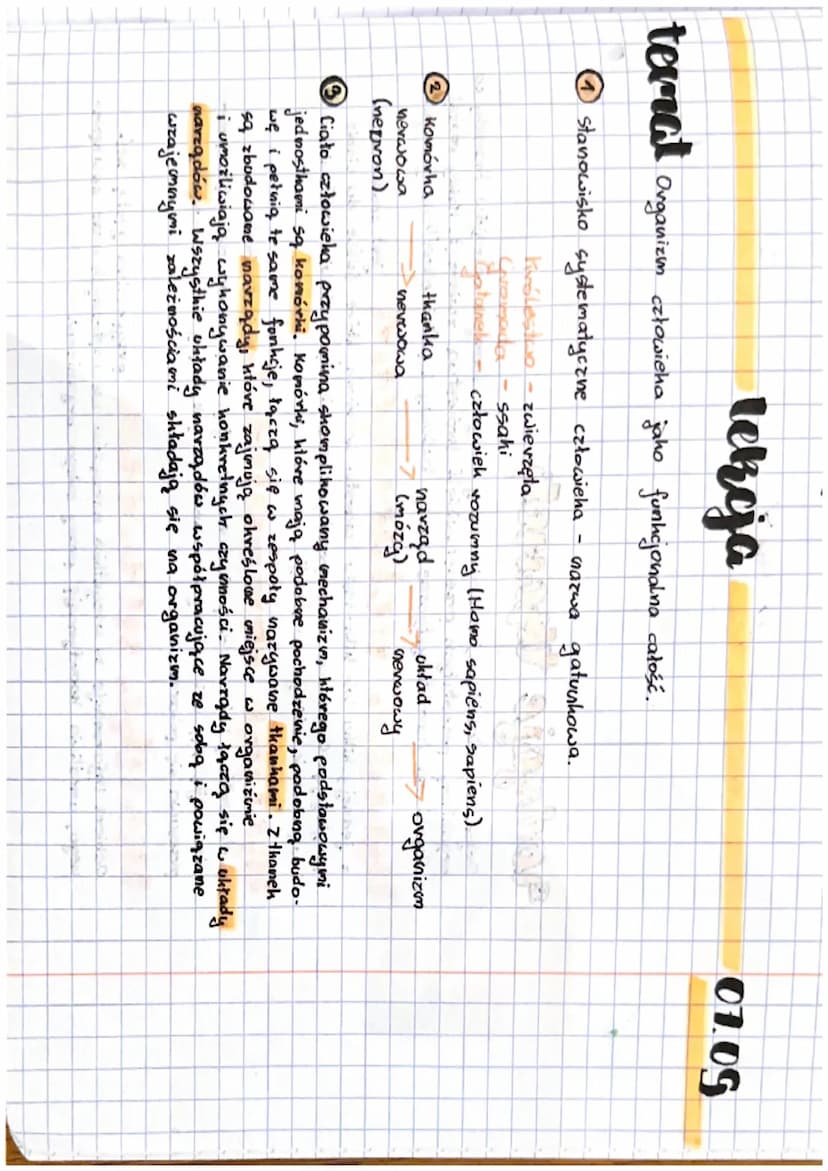 lekcja 07.09
temat Organizm człowieka jako funkcjonalna całość.
1 Stanowisko systematyczne człowieka - nazwa gatunkowa.
Królestwo - zwierzęta
Gromada - ssaki
Gatunek - człowiek rozumny (Homo sapiens, sapiens)
2 komórka → tkanka → narząd → układ → organizm
nerwowa nerwowa (mózg) nerwowy
(neuron)
3 Ciało człowieka przypomina skomplikowany mechanizm, którego podstawowymi
jednostkami są komórki. Komórki, które mają podobne pochodzenie, podobną budo-
wę i pełnią te same funkcje, łączą się w zespoły nazywane tkankami. Z tkanek
są zbudowane narządy, które zajmują określone miejsce w organizmie
i umożliwiają wykonywanie konkretnych czynności. Narządy łączą się w układy
narządów. Wszystkie układy narządów współpracujące ze sobą i powiązane
wzajemnymi zależnościami składają się na organizm.